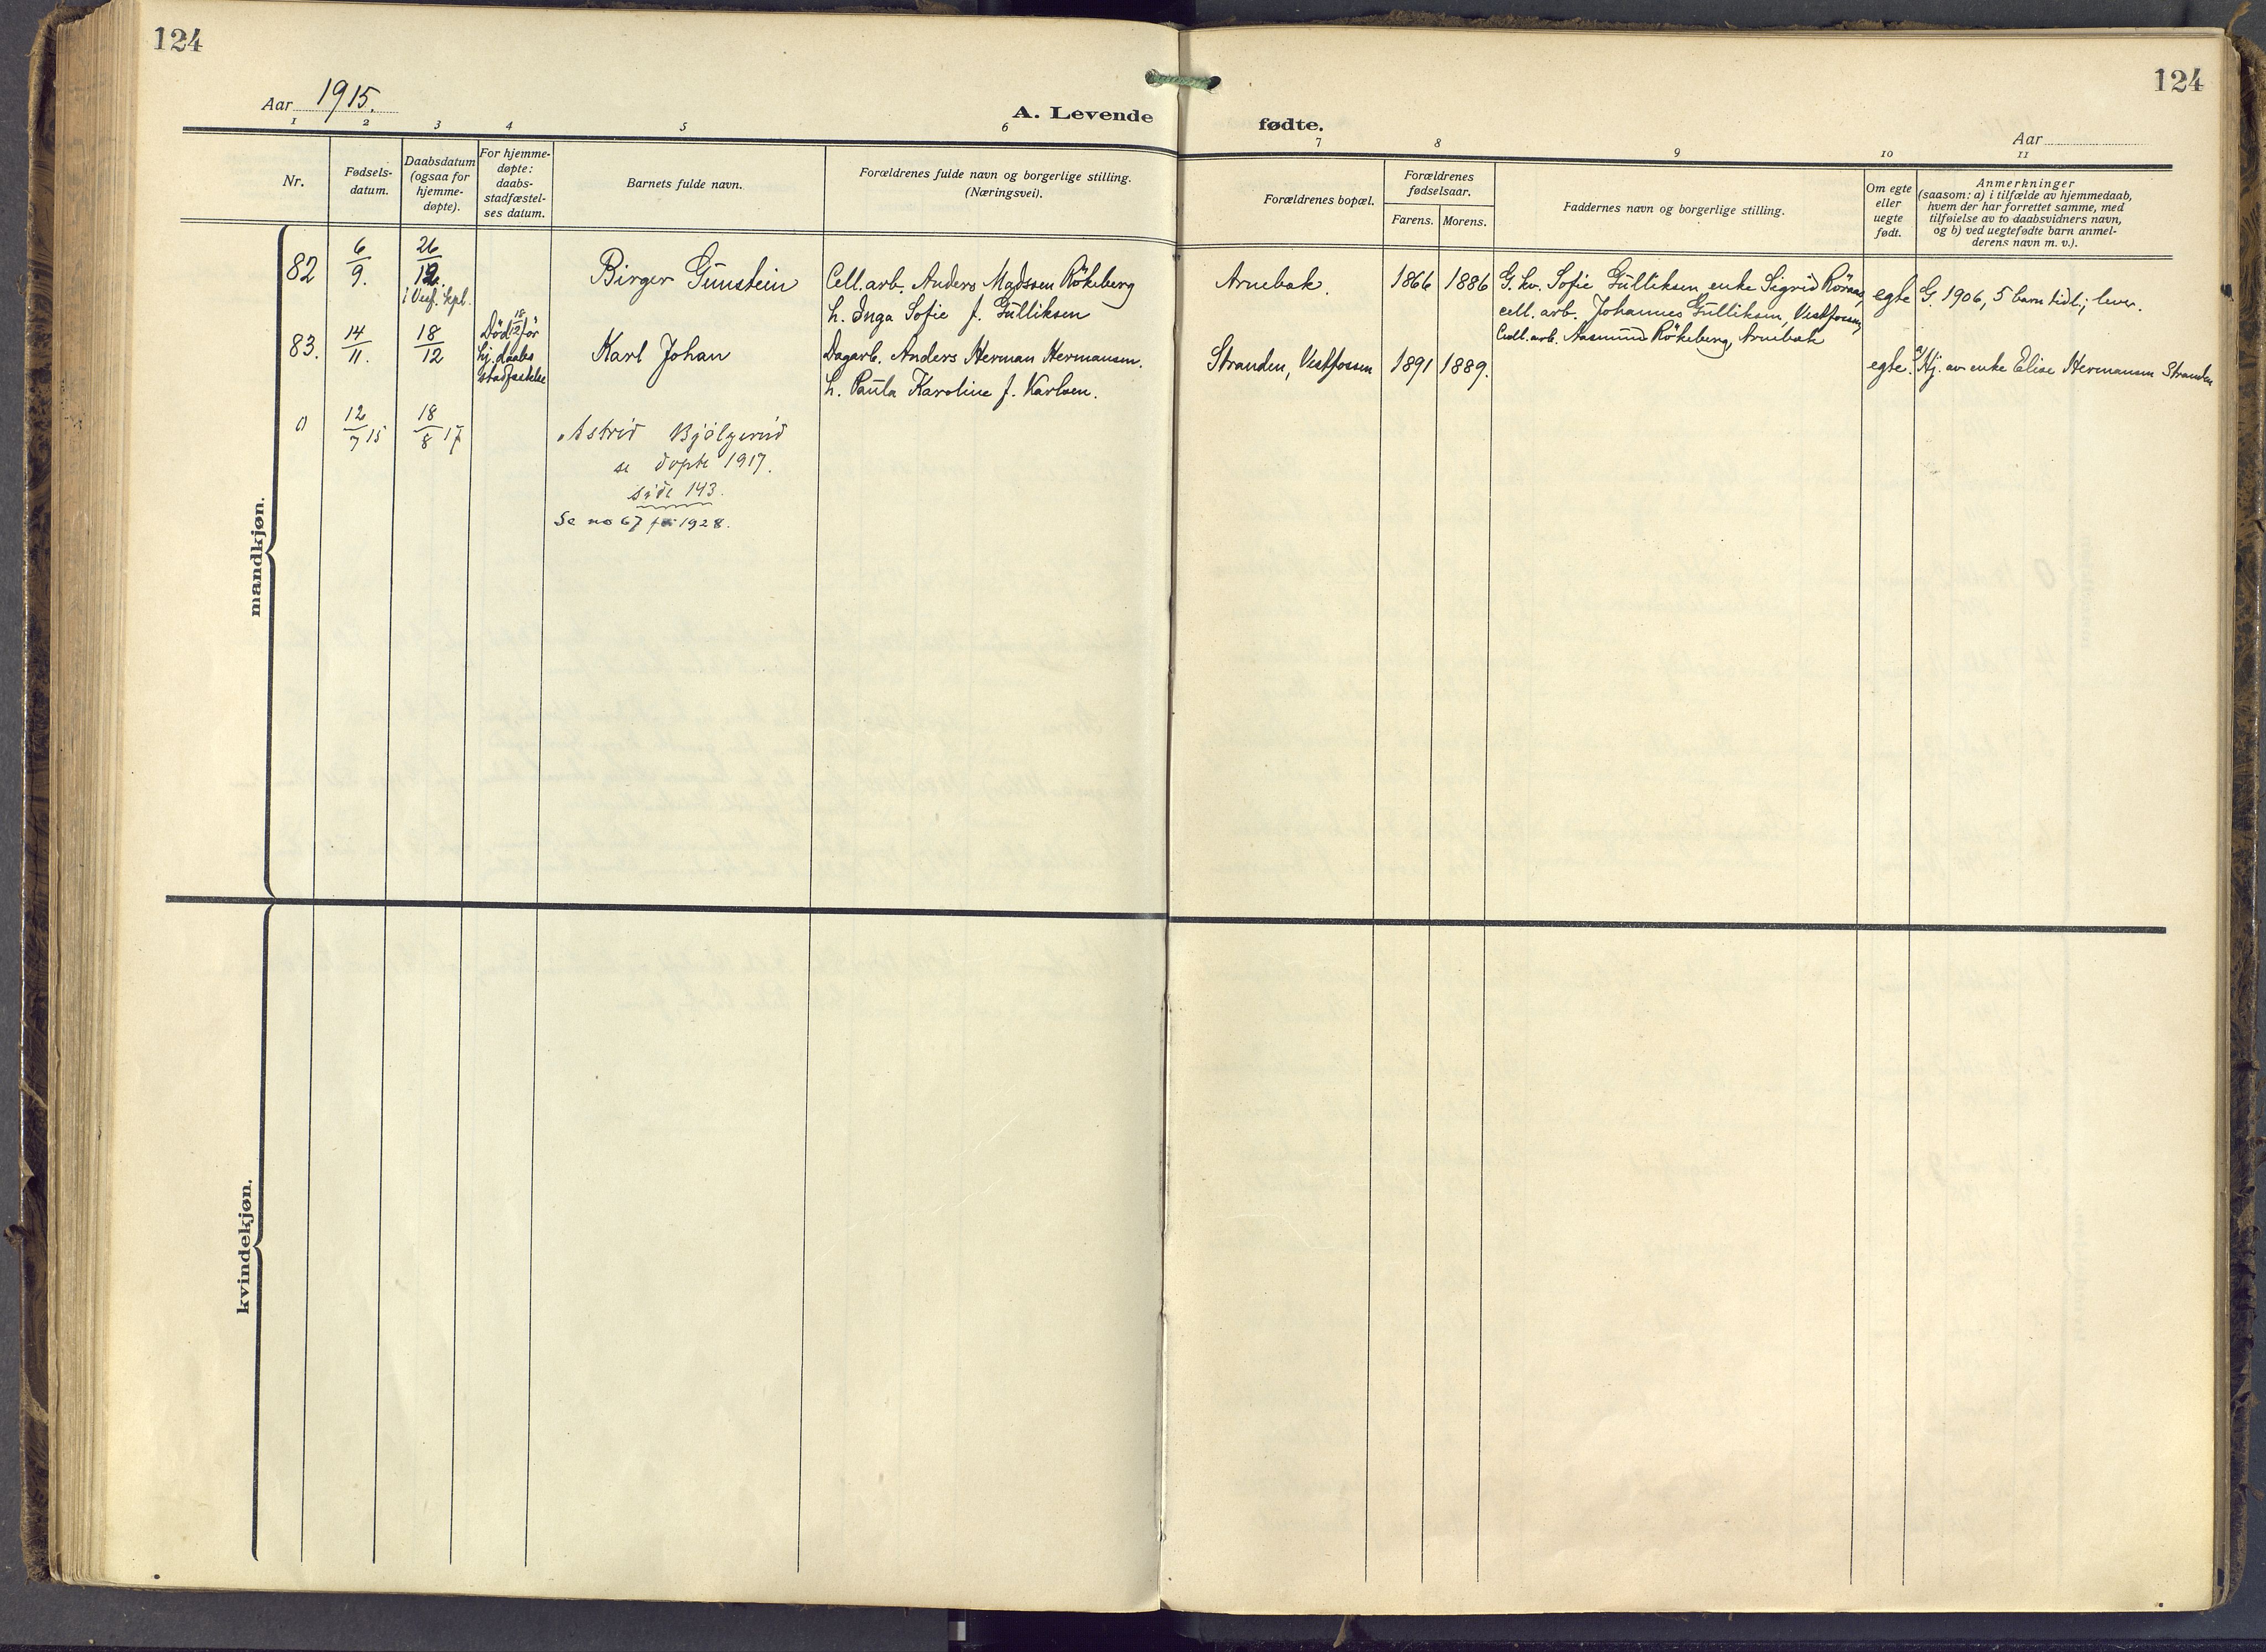 124
124
Aar 1915.
A. Levende fødte.
Aar
1 2 3 4 5 6 7 8 9 10 11
Nr.
Fødsels-
datum.
Daabsdatum
(ogsaa for
hjemme-
døpte).
For hjemme-
døpte:
daabs-
stadfæstel-
ses datum.
Barnets fulde navn.
Forældrenes fulde navn og borgerlige stilling.
(Næringsvei).
Forældrenes bopæl.
Forældrenes
fødselsaar.
Farens. Morens.
Faddernes navn og borgerlige stilling.
Om egte
eller
uegte
født.
Anmerkninger
(saasom: a) i tilfælde av hjemmedaab,
hvem der har forrettet samme, med
tilføielse av to daabsvidners navn,
og b) ved uegtefødte barn anmel-
derens navn m. v.).
mandkjøn.
82
6/9.
26/12.
i Vesf. kpl.
Birger Gunstein
Cell.arb. Anders Madssen Rökeberg
h. Inga Sofie f. Gulliksen
Arnebak.
1866 1886
G. kv. Sofie Gulliksen, enke Sigrid Röraas,
cell. arb. Johannes Gulliksen, Vestfossen,
Cell.arb. Aasmund Rökeberg, Arnebak
egte
G. 1906, 5 barn tidl.; lever.
83.
14/11.
18/12
Död 18/12 för
hj.daabs
stadfæstelse
Karl Johan
Dagarb. Anders Herman Hermansen.
h. Paula Karoline f. Karlsen.
Stranden, Vestfossen
1891 1889.
egte.
a/ Hj. av enke Elise Hermansen Stranden
0
12/7 15
18/8 17
Astrid Bjölgerud
se döpte 1917.
side 143.
Se no 67 for 1928.
kvindekjøn.